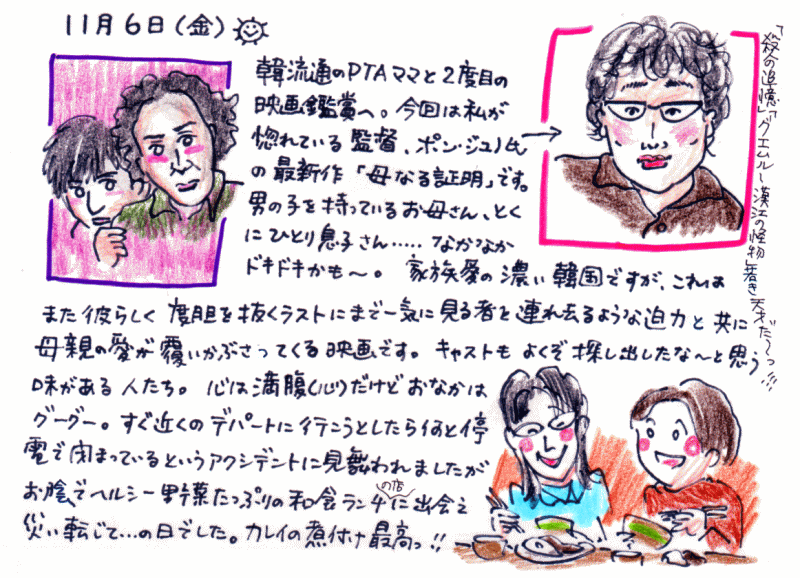 11月6日(金)
韓流通のPTAママと2度目の
映画鑑賞へ。今回は私が
惚れている監督、ポン・ジュノ氏
の最新作「母なる証明」です。
男の子を持っているお母さん、とく
にひとり息子さん…… なかなか
ドキドキかも〜。 家族愛の濃い韓国ですが、これは
また彼らしく 度胆を抜くラストにまで一気に見る者を連れ去るような迫力と共に
母親の愛が覆いかぶさってくる映画です。 キャストもよくぞ探し出したな〜と思う
味がある人たち。 心は満腹(心)だけどおなかは
グーグー。すぐ近くのデパートに行こうとしたら何と停
電で閉まっているというアクシデントに見舞われましたが
お陰でヘルシー野菜たっぷりの和食ランチの店に出会え
災い転じて…の日でした。カレイの煮付け最高っ!!
「殺人の追憶」「グエムルー漢江の怪物」若き天才だ〜っ!!!